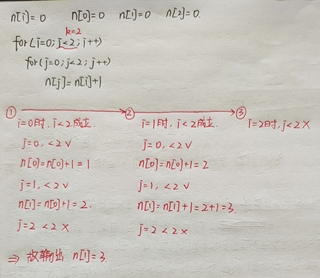 n[i]=0 n[0]=0 n[1]=0 n[2]=0.
k=2
for(i=0;i<2;i++)
for(j=0;j<2;j++)
n[j]=n[i]+1
① ② ③
i=0时,i<2成立. i=1时,i<2成立. i=2时,i<2×
j=0,<2√ j=0,<2√
n[0]=n[0]+1=1 n[0]=n[0]+1=2
j=1,<2√ j=1,<2√
n[1]=n[0]+1=2. n[1]=n[1]+1=2+1=3.
j=2<2× j=2<2×
⇒ 故输出 n[1]=3.